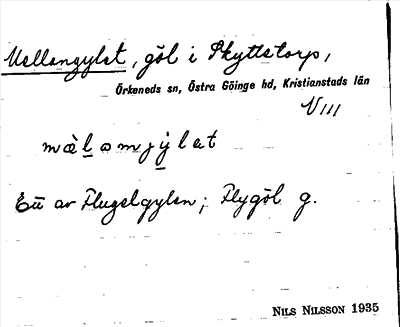 Mellangylet, göl i Skyttetorp,
Örkeneds sn, Östra Göinge hd, Kristianstads län
VIII
mὰlamjýlet
En av Flugelgylen; Flygöl g.
NILS NILSSON 1935